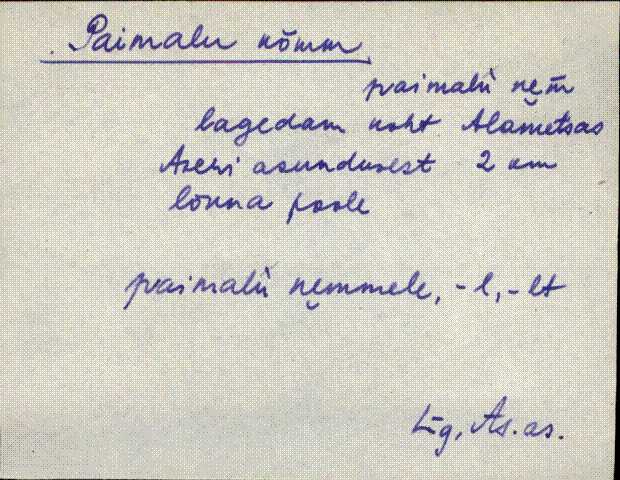 Paimalu nõmm
paimalu̇ nęm̄
lagedam koht Alametsas
Aseri asundusest 2 km
lõuna poole
paimalu̇ nęmmele, -l, -lt
Lüg, As. as.